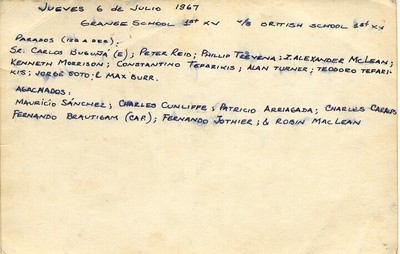 JUEVES 6 de JULIO 1967
GRANGE SCHOOL 1st XV V/S BRITISH SCHOOL 1st XV
PARADOS (IZQ A DER):
SR. CARLOS BUGUÑÁ (E); PETER REID; PHILLIP TREVENA; J. ALEXANDER MCLEAN;
KENNETH MORRISON; CONSTANTINO TEFARIKIS; ALAN TURNER; TEODORO TEFARI-
KIS; JORGE SOTO; & MAX BURR.
AGACHADOS:
MAURICIO SÁNCHEZ; CHARLES CUNLIFFE; PATRICIO ARRIAGADA; CHARLES
FERNANDO BRAUTIGAM (CAP.); FERNANDO JOTHIER; & ROBIN MACLEAN